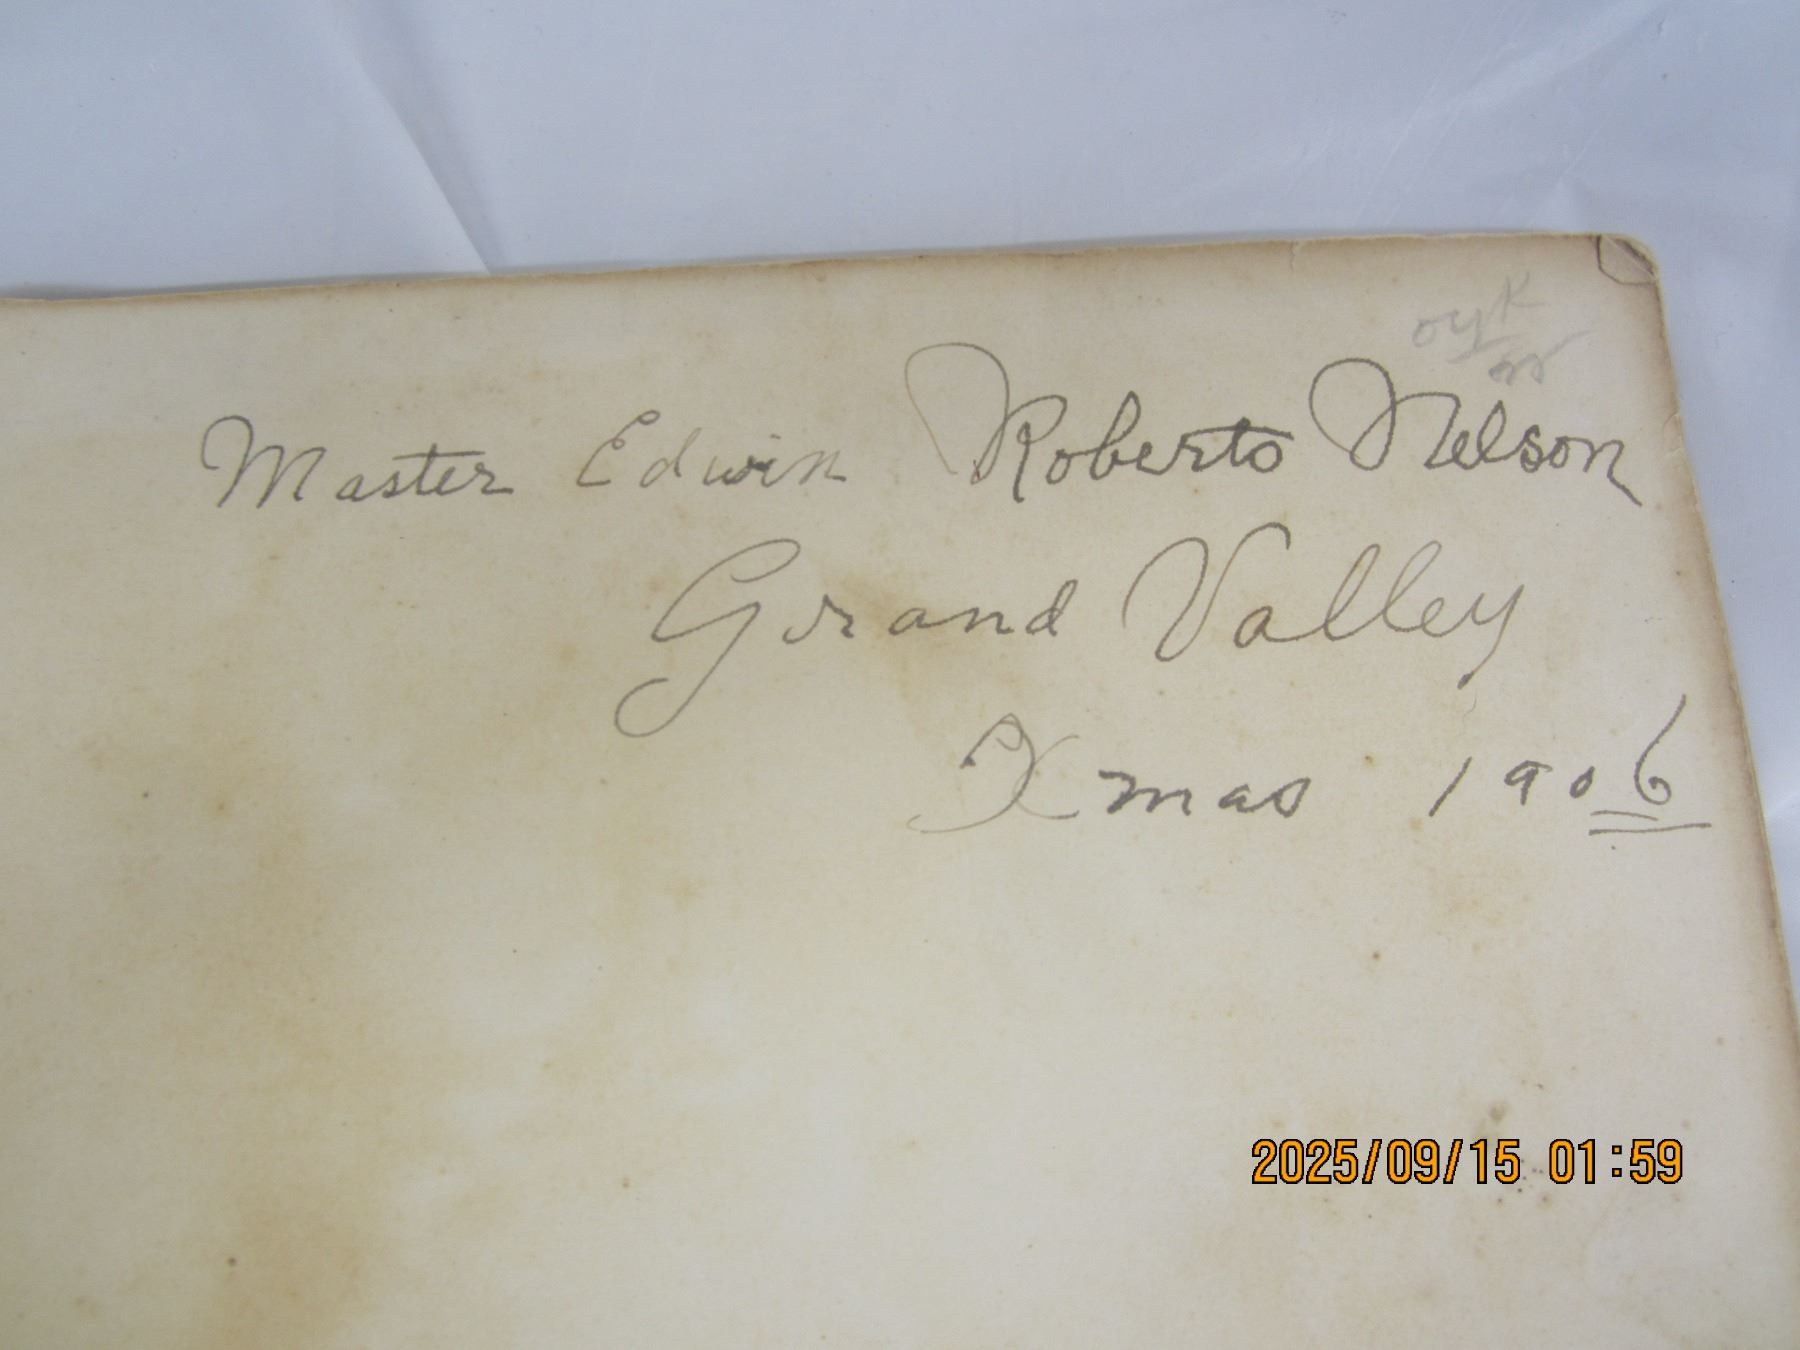 Master Edwin Roberto Nelson
Grand Valley
Xmas 1906
2025/09/15 01:59